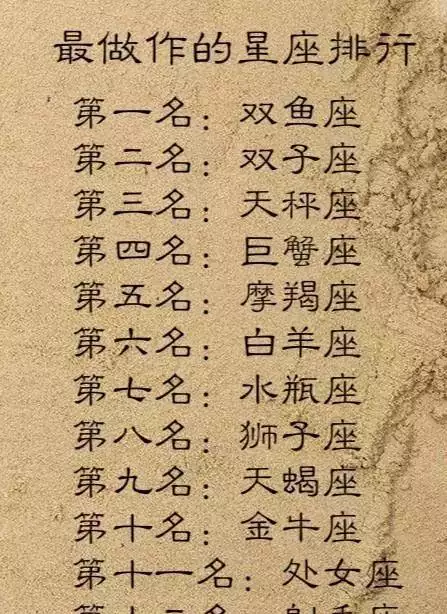 最做作的星座排行
第一名：双鱼座
第二名：双子座
第三名：天秤座
第四名：巨蟹座
第五名：摩羯座
第六名：白羊座
第七名：水瓶座
第八名：狮子座
第九名：天蝎座
第十名：金牛座
第十一名：处女座